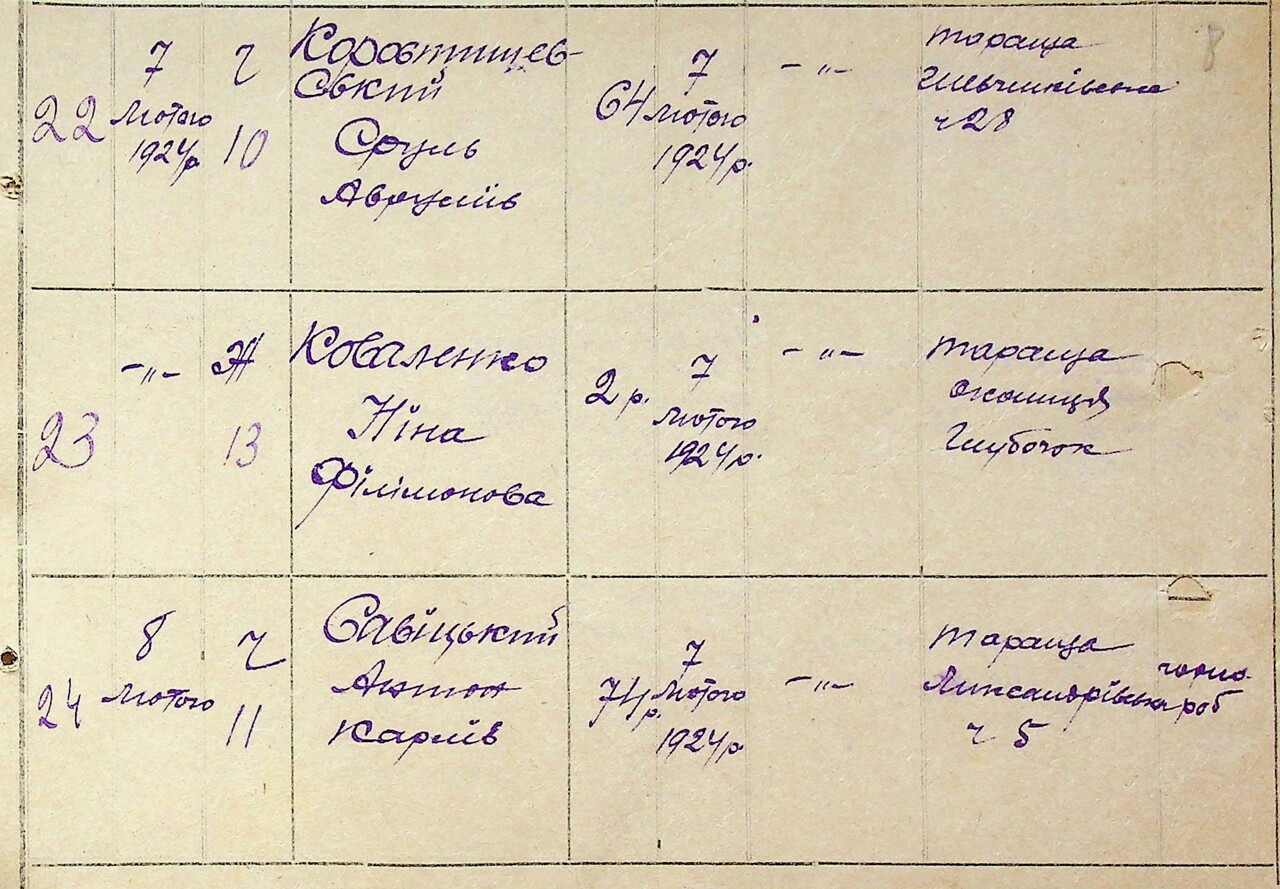 22
7
лютого
1924р
ч
10
Коростишев-
ський
Сруль
Аврумів
64
7
лютого
1924р.
-"-
тараща
ч 28
8
23
-"-
Ж
13
Коваленко
Ніна
Філімонова
2 р.
7
лютого
1924р.
-"-
тараща
околиця
Глубочок
24
8
лютого
ч
11
Савіцький
Антон
Карлів
74
р.
7
лютого
1924р.
-"-
тараща
Ликсандрівська
ч 5
чорно-
роб